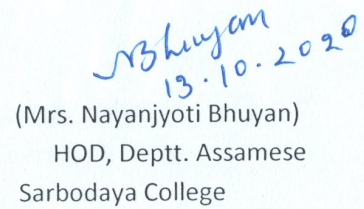 NBhuyan
13.10.2020
(Mrs. Nayanjyoti Bhuyan)
HOD, Deptt. Assamese
Sarbodaya College